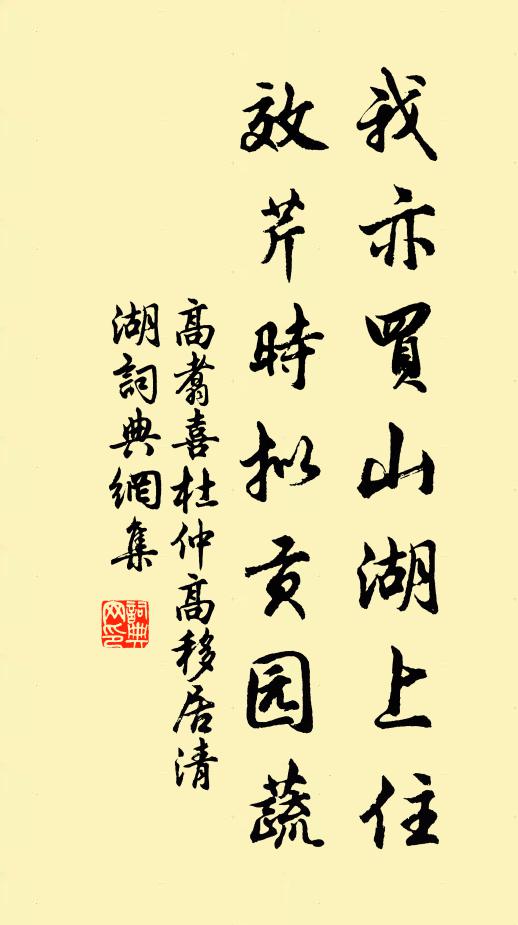 我亦買山湖上住
效芹時拟贡园蔬
高翥喜杜仲高移居清
湖詞典網集
詞典网印